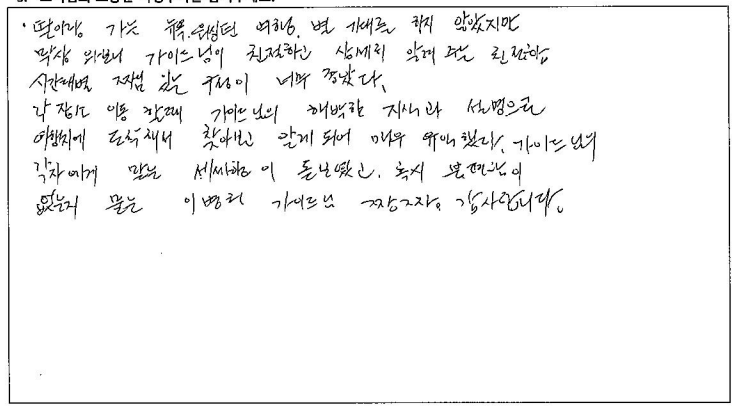 · 딸이랑 가는 뉴욕.워싱턴 여행. 별 기대를 하지 않았지만
막상 와보니 가이드님이 친절하고 상세히 알려 주는 친절함
시간대별 짜임 있는 구성이 너무 좋았다.
각 장소 이동 할때 가이드님의 해박한 지식과 설명으로
여행지에 도착해서 찾아보고 알게 되어 매우 유익했다. 가이드님의
각자에게 맞는 세심함이 돋보였고. 혹시 불편함이
없는지 묻는 이병헌 가이드님 짱짱. 감사합니다.